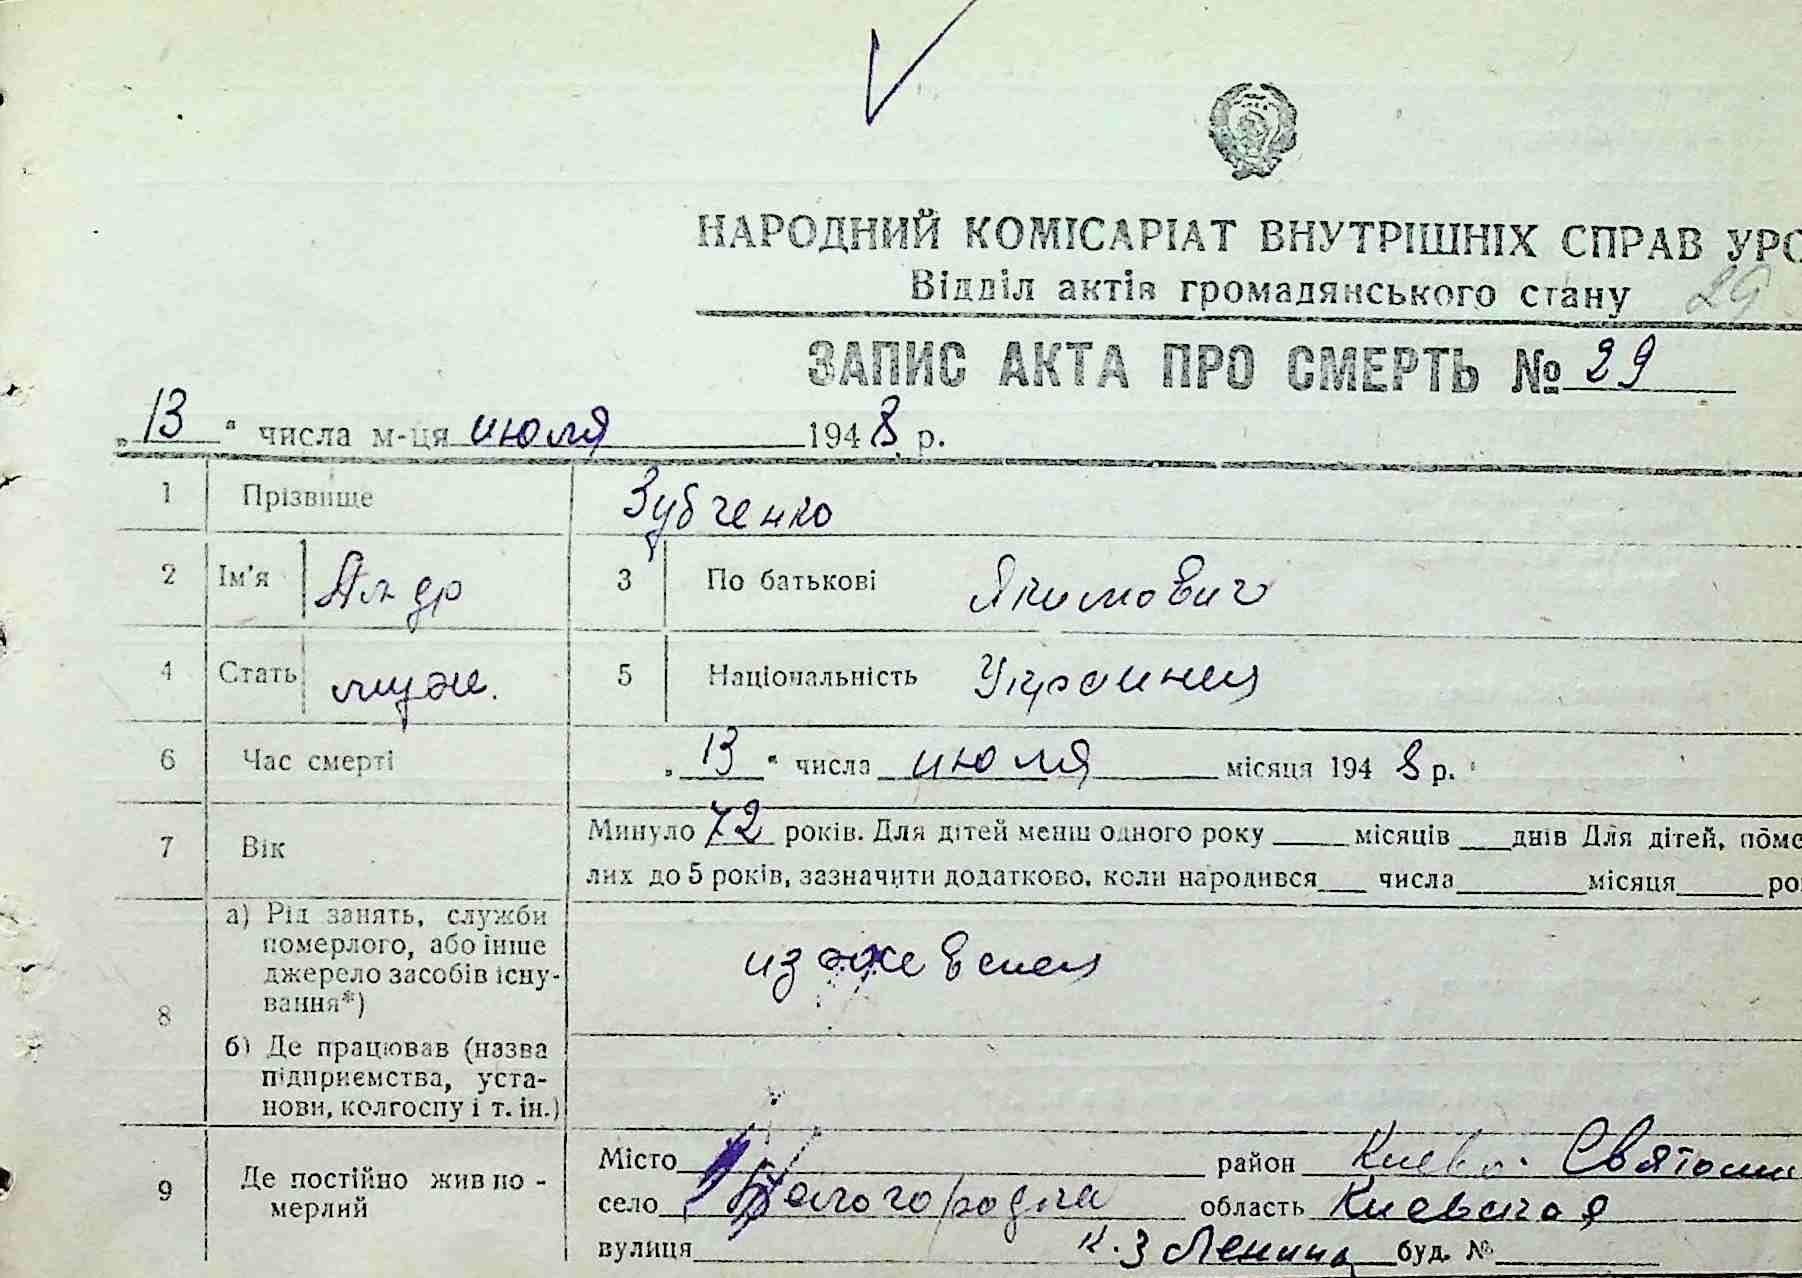 НАРОДНИЙ КОМІСАРІАТ ВНУТРІШНІХ СПРАВ УРС
Відділ актів громадянського стану 29
ЗАПИС АКТА ПРО СМЕРТЬ № 29
„13“ числа м-ця июля 1948 р.
1 Прізвище Зубченко
2 Ім'я 3 По батькові Якимович
4 Стать муж. 5 Національність Украинец
6 Час смерті „13“ числа июля місяця 1948 р.
7 Вік Минуло 72 років. Для дітей менш одного року ___ місяців ___ днів Для дітей, поме
лих до 5 років, зазначити додатково, коли народився ___ числа ___ місяця ___ ро
8 а) Рід занять, служби
померлого, або інше
джерело засобів існу-
вання*) иждевенец
б) Де працював (назва
підприємства, уста-
нови, колгоспу і т. ін.)
9 Де постійно жив по-
мерлий
Місто ___ район Киево-Святошин
село Белогородка область Киевская
вулиця к-з Ленина буд. №